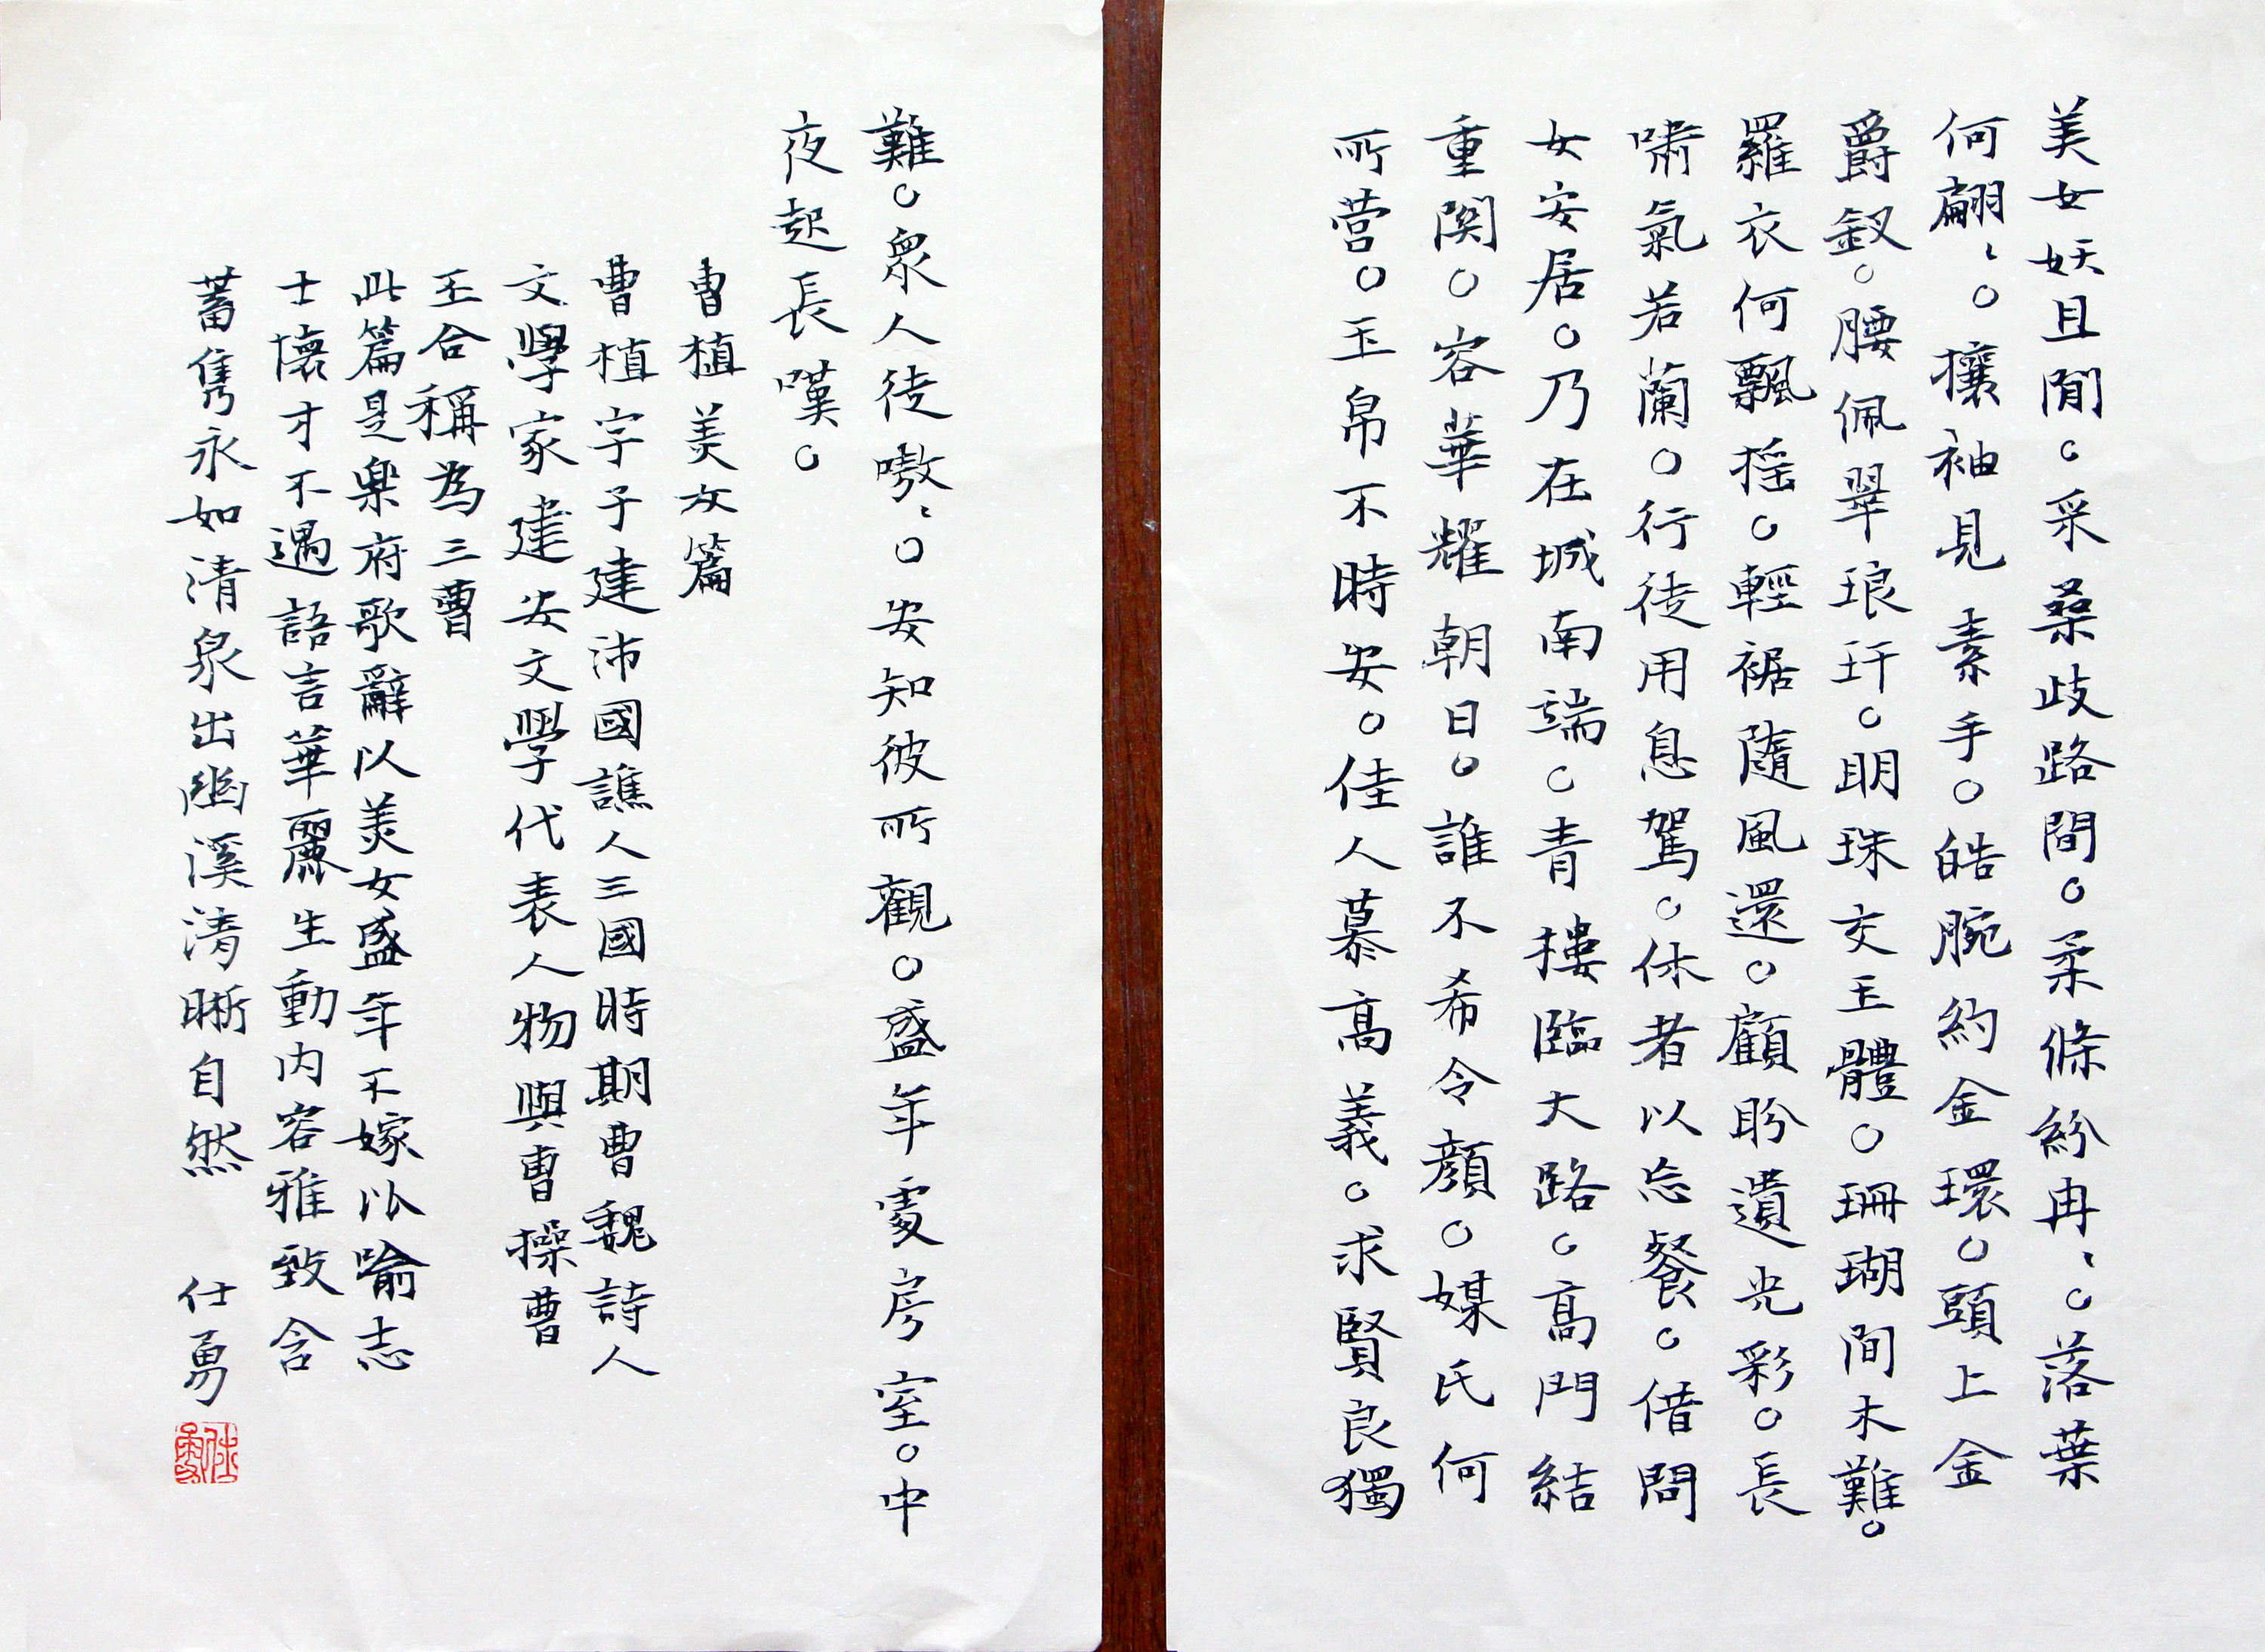 美女妖且閒。采桑歧路間。柔條紛冉〻。落葉
何翩〻。攘袖見素手。皓腕約金環。頭上金
爵釵。腰佩翠琅玕。明珠交玉體。珊瑚間木難。
羅衣何飄搖。輕裾隨風還。顧盼遺光彩。長
嘯氣若蘭。行徒用息駕。休者以忘餐。借問
女安居。乃在城南端。青樓臨大路。高門結
重関。容華耀朝日。誰不希令顏。媒氏何
所營。玉帛不時安。佳人慕高義。求賢良獨
難。眾人徒嗷〻。安知彼所觀。盛年處房室。中
夜起長嘆。
曹植美女篇
曹植字子建沛國譙人三國時期曹魏詩人
文學家建安文學代表人物與曹操曹
丕合稱為三曹
此篇是樂府歌辭以美女盛年不嫁以喻志
士懷才不遇語言華麗生動内容雅致含
蓄雋永如清泉出幽溪清晰自然 仕勇